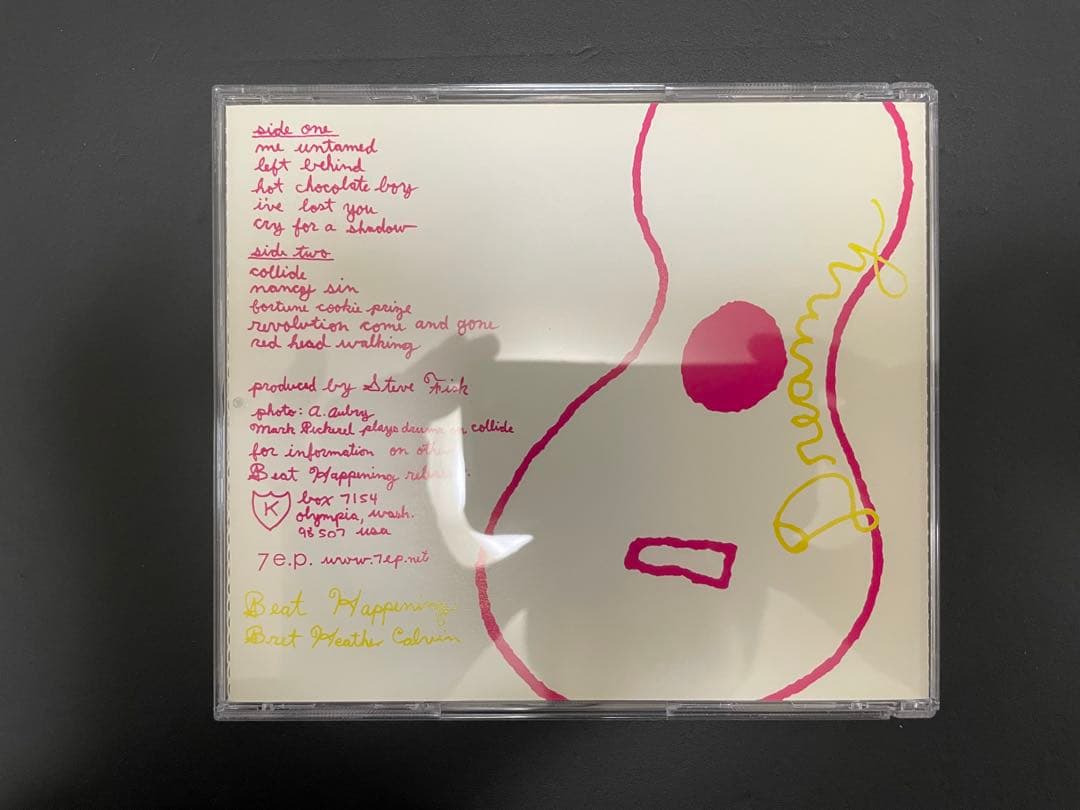 side one
me untamed
left behind
hot chocolate boy
i've lost you
cry for a shadow
side two
collide
nancy sin
fortune cookie prize
revolution come and gone
red head walking
produced by Steve Fisk
photo: A. Aubry
Mark Pickerel plays drums on collide
for information on other
Beat Happening
K
box 7154
olympia, wash.
98507 usa
7e.p. www.7ep.net
Beat Happening
Bret Heather Calvin
Dreamy